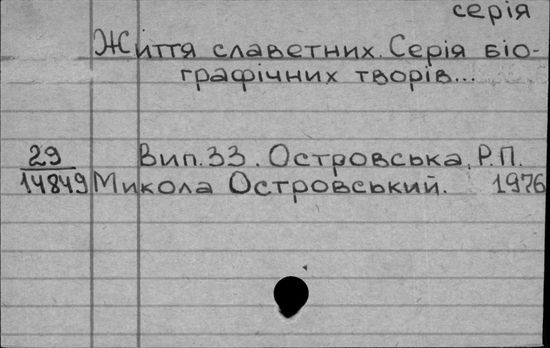 серія
Життя славетних. Серія біо-
графічних творів...
29 Вип. 33. Островська, Р.П.
14849 Микола Островський. 1976